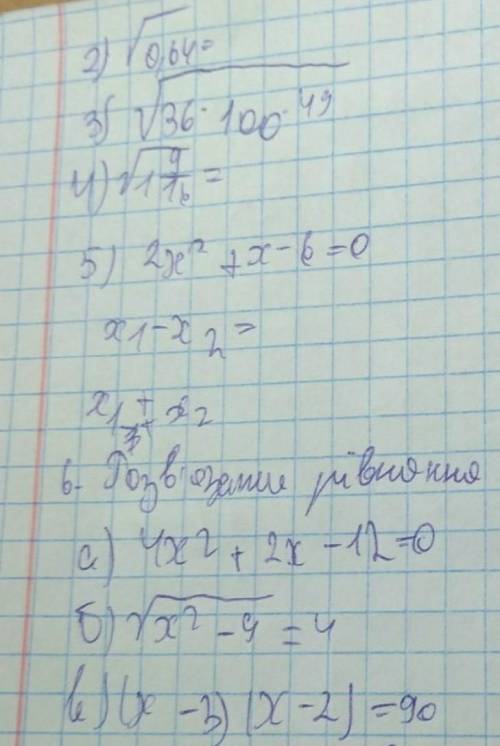 2) √0,64=
3) √36·100·49
4) √1 9/16 =
5) 2x² + x - 6 = 0
x₁ - x₂ =
x₁ + x₂
6. рівняння
а) 4x² + 2x - 12 = 0
б) √x² - 4 = 4
в) (x - 3) (x - 2) = 90